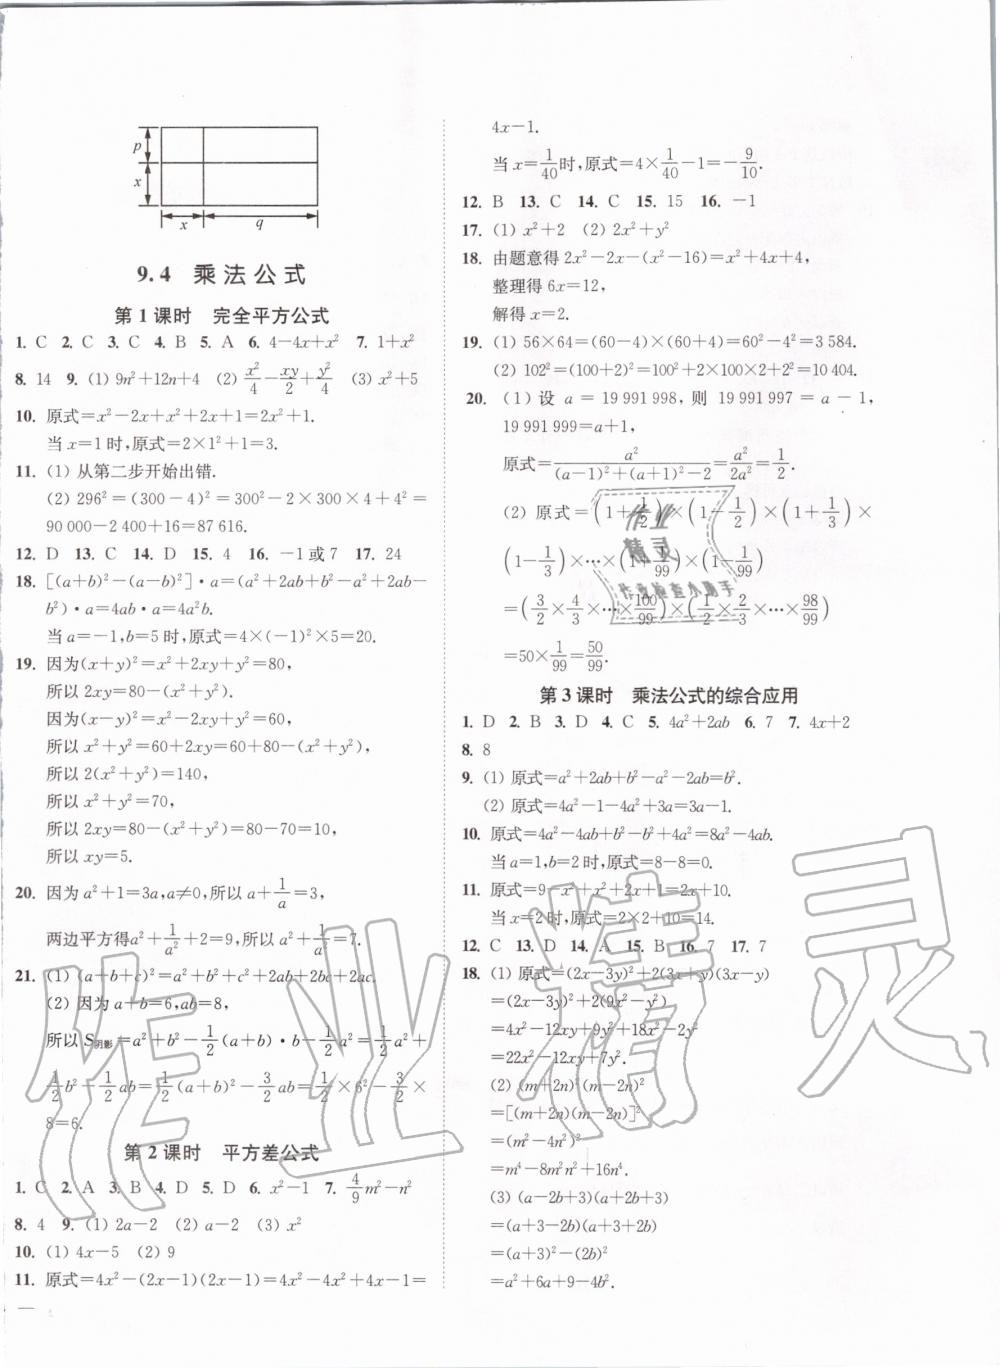 p
x
x q
9.4 乘法公式
第1课时 完全平方公式
1. C 2. C 3. C 4. B 5. A 6. 4-4x+x² 7. 1+x²
8. 14 9. (1) 9n²+12n+4 (2) x²/4-xy/2+y²/4 (3) x²+5
10. 原式=x²-2x+x²+2x+1=2x²+1.
当x=1时,原式=2×1²+1=3.
11. (1) 从第二步开始出错.
(2) 296²=(300-4)²=300²-2×300×4+4²=
90 000-2 400+16=87 616.
12. D 13. C 14. D 15. 4 16. -1或7 17. 24
18. [(a+b)²-(a-b)²]·a=(a²+2ab+b²-a²+2ab-
b²)·a=4ab·a=4a²b.
当a=-1,b=5时,原式=4×(-1)²×5=20.
19. 因为(x+y)²=x²+2xy+y²=80,
所以2xy=80-(x²+y²).
因为(x-y)²=x²-2xy+y²=60,
所以x²+y²=60+2xy=60+80-(x²+y²),
所以2(x²+y²)=140,
所以x²+y²=70,
所以2xy=80-(x²+y²)=80-70=10,
所以xy=5.
20. 因为a²+1=3a,a≠0,所以a+1/a=3,
两边平方得a²+1/a²+2=9,所以a²+1/a²=7.
21. (1) (a+b+c)²=a²+b²+c²+2ab+2bc+2ac.
(2) 因为a+b=6,ab=8,
所以S阴影=a²+b²-1/2(a+b)·b-1/2a²=1/2a²+
1/2b²-1/2ab=1/2(a+b)²-3/2ab=1/2×6²-3/2×
8=6.
第2课时 平方差公式
1. C 2. A 3. B 4. D 5. D 6. x²-1 7. 4/9m²-n²
8. 4 9. (1) 2a-2 (2) a-2 (3) x²
10. (1) 4x-5 (2) 9
11. 原式=4x²-(2x-1)(2x-1)=4x²-4x²+4x-1=
4x-1.
当x=1/40时,原式=4×1/40-1=-9/10.
12. B 13. C 14. C 15. 15 16. -1
17. (1) x²+2 (2) 2x²+y²
18. 由题意得2x²-2x-(x²-16)=x²+4x+4,
整理得6x=12,
解得x=2.
19. (1) 56×64=(60-4)×(60+4)=60²-4²=3 584.
(2) 102²=(100+2)²=100²+2×100×2+2²=10 404.
20. (1) 设a=19 991 998,则19 991 997=a-1,
19 991 999=a+1,
原式=a²/((a-1)²+(a+1)²-2)=a²/2a²=1/2.
(2) 原式=(1+1/2)×(1-1/2)×(1+1/3)×
(1-1/3)×…×(1+1/99)×(1-1/99)
=(3/2×4/3×…×100/99)×(1/2×2/3×…×98/99)
=50×1/99=50/99.
第3课时 乘法公式的综合应用
1. D 2. B 3. D 4. C 5. 4a²+2ab 6. 7 7. 4x+2
8. 8
9. (1) 原式=a²+2ab+b²-a²-2ab=b².
(2) 原式=4a²-1-4a²+3a=3a-1.
10. 原式=4a²-4ab+b²-b²+4a²=8a²-4ab.
当a=1,b=2时,原式=8-8=0.
11. 原式=9-x²+x²+2x+1=2x+10.
当x=2时,原式=2×2+10=14.
12. C 13. D 14. A 15. B 16. 7 17. 7
18. (1) 原式=(2x-3y)²+2(3x+y)(3x-y)
=(2x-3y)²+2(9x²-y²)
=4x²-12xy+9y²+18x²-2y²
=22x²-12xy+7y².
(2) (m+2n)²(m-2n)²
=[(m+2n)(m-2n)]²
=(m²-4n²)²
=m⁴-8m²n²+16n⁴.
(3) (a-2b+3)(a+2b+3)
=(a+3-2b)(a+3+2b)
=(a+3)²-(2b)²
=a²+6a+9-4b².
作业
精灵
作业检查小助手
作业精灵